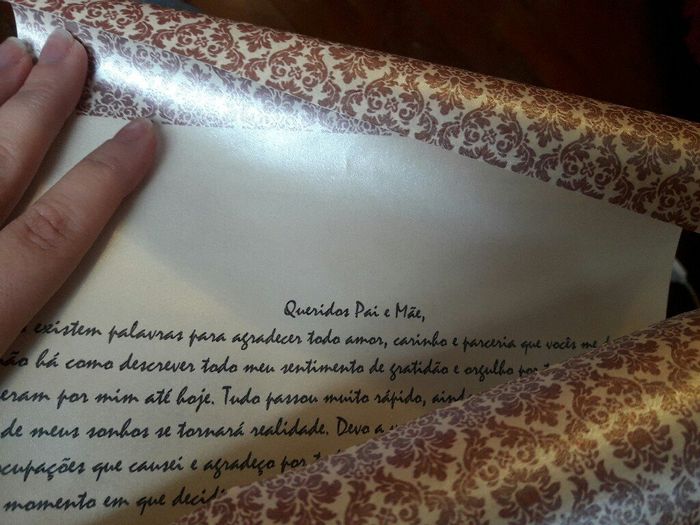 Queridos Pai e Mãe,
existem palavras para agradecer todo amor, carinho e parceria que vocês me
há como descrever todo meu sentimento de gratidão e orgulho
por mim até hoje. Tudo passou muito rápido,
de meus sonhos se tornará realidade. Devo a
que causei e agradeço
momento em que